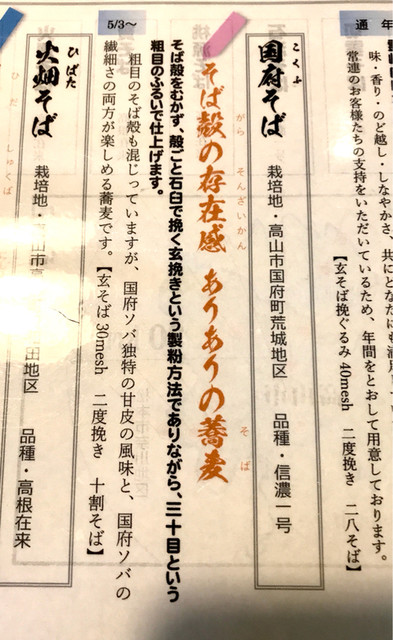 通年
味・香り・のど越し・しなやかさ、共に
常連のお客様たちの支持をいただいているため、年間をとおして用意しております。
【玄そば挽ぐるみ 40mesh 二度挽き 二八そば】
こくふ
国府そば
栽培地・高山市国府町荒城地区 品種・信濃一号
そば殻の存在感 ありありの蕎麦
がら そんざいかん そば
そば殻をむかず、殻ごと石臼で挽く玄挽きという製粉方法でありながら、三十目という
粗目のふるいで仕上げます。
粗目のそば殻も混じっていますが、国府ソバ独特の甘皮の風味と、国府ソバの
繊細さの両方が楽しめる蕎麦です。【玄そば 30mesh 二度挽き 十割そば】
5/3〜
ひばた
火畑そば
栽培地・高山市高 田地区 品種・高根在来